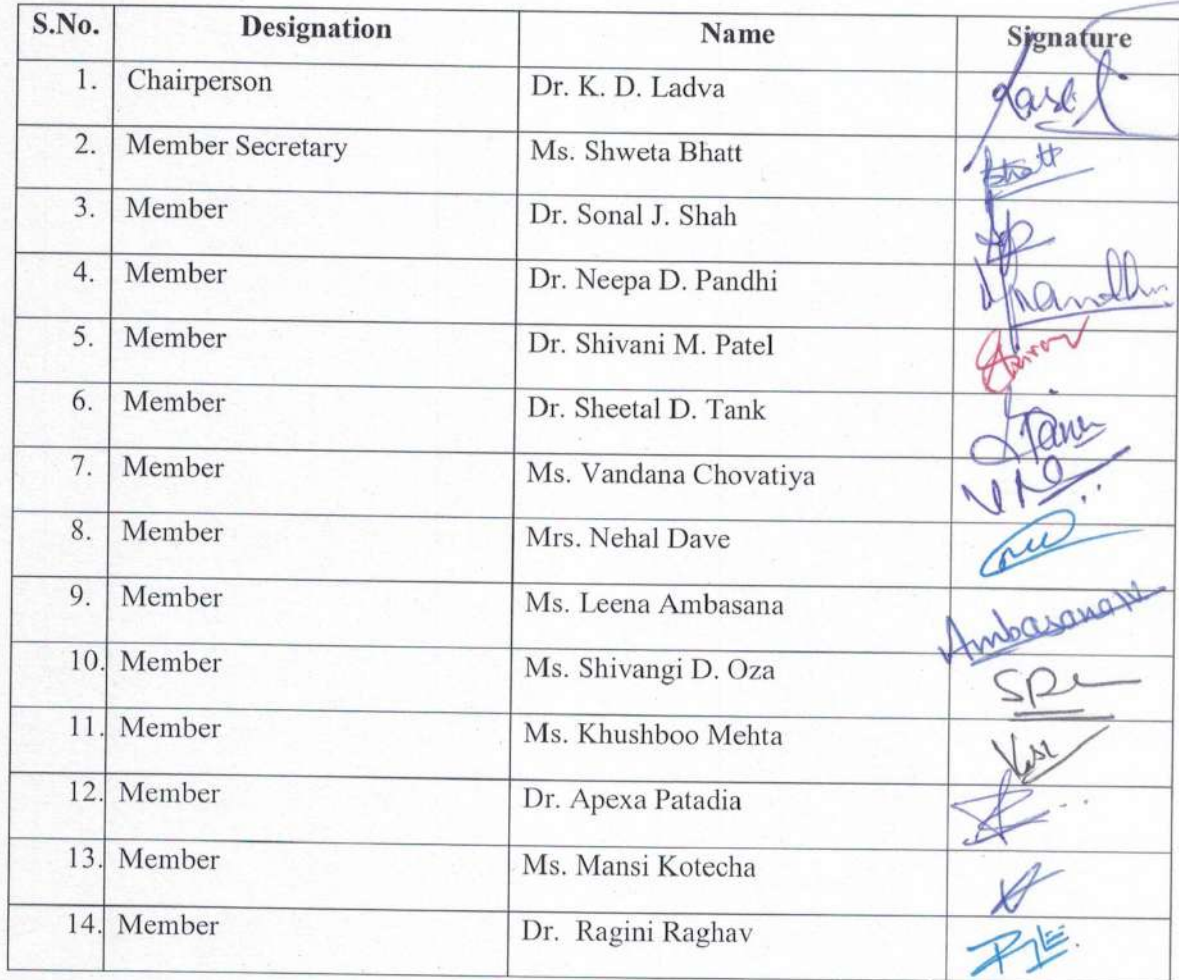 S.No. Designation Name Signature
1. Chairperson Dr. K. D. Ladva
2. Member Secretary Ms. Shweta Bhatt Bhatt
3. Member Dr. Sonal J. Shah
4. Member Dr. Neepa D. Pandhi
5. Member Dr. Shivani M. Patel
6. Member Dr. Sheetal D. Tank
7. Member Ms. Vandana Chovatiya
8. Member Mrs. Nehal Dave
9. Member Ms. Leena Ambasana Ambasana
10. Member Ms. Shivangi D. Oza
11. Member Ms. Khushboo Mehta
12. Member Dr. Apexa Patadia
13. Member Ms. Mansi Kotecha
14. Member Dr. Ragini Raghav